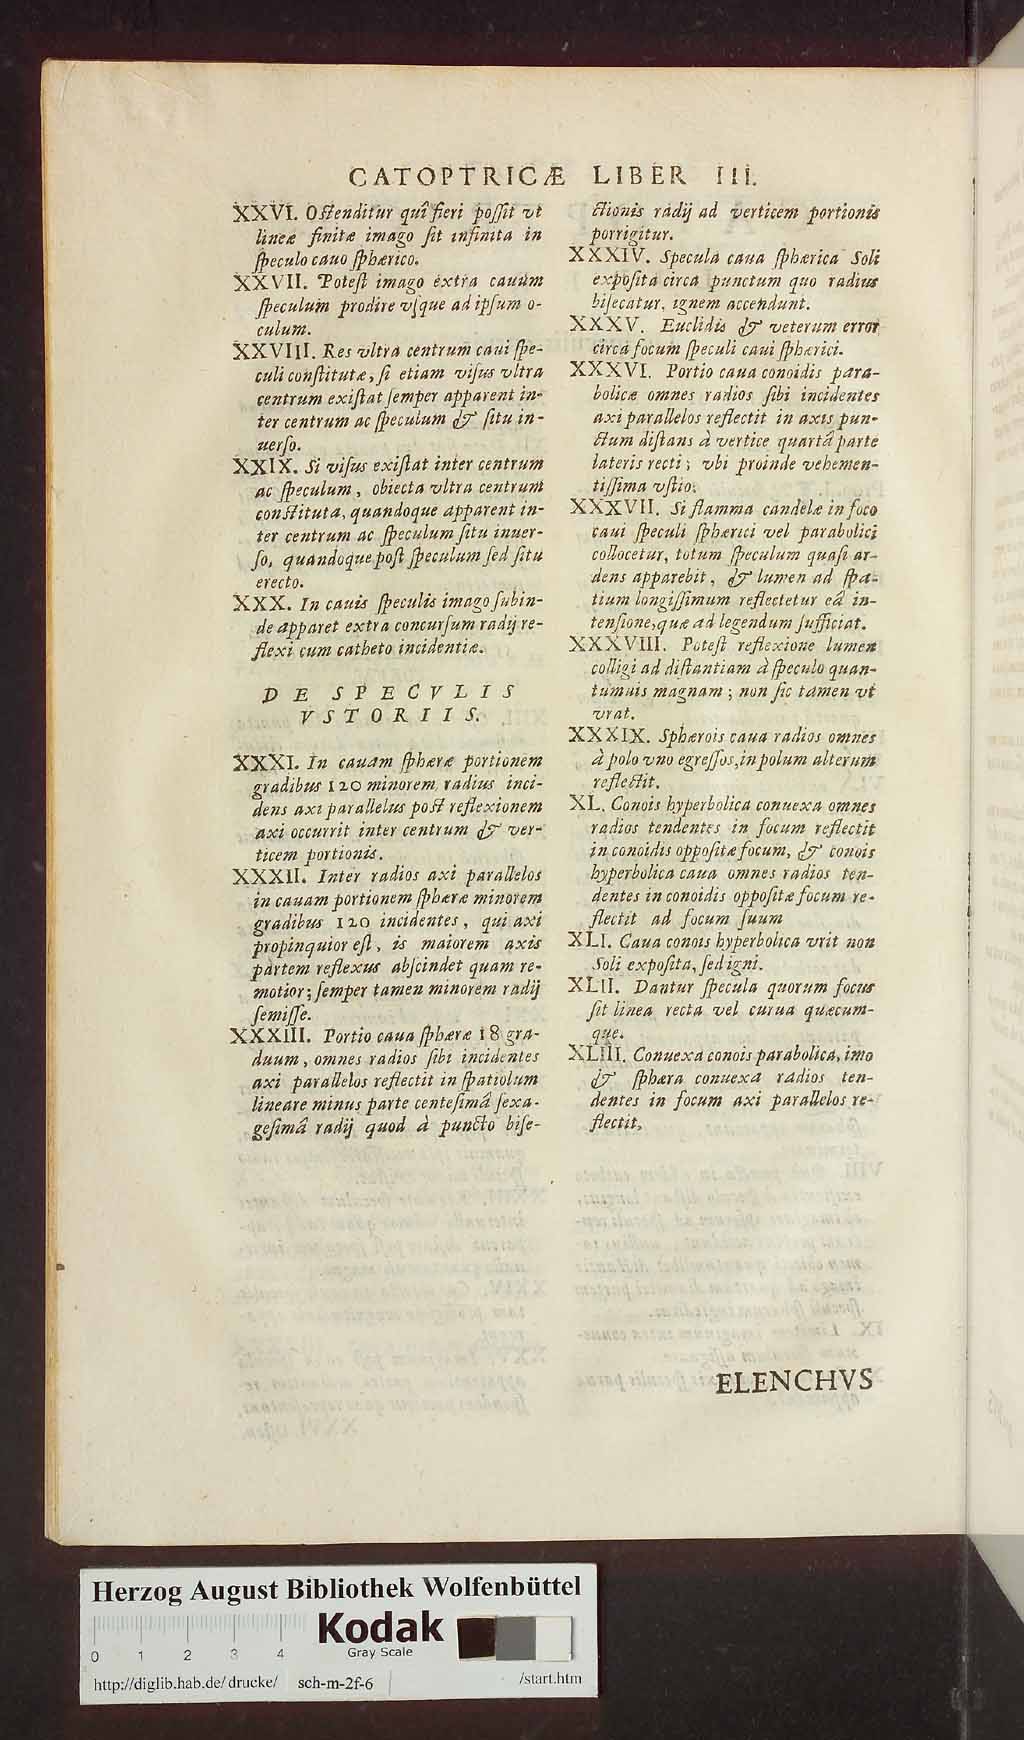 CATOPTRICÆ LIBER III.
XXVI. Ostenditur quî fieri possit vt
lineæ finitæ imago sit infinita in
speculo cauo sphærico.
XXVII. Potest imago extra cauum
speculum prodire vsque ad ipsum o-
culum.
XXVIII. Res vltra centrum caui spe-
culi constitutæ, si etiam visus vltra
centrum existat semper apparent in-
ter centrum ac speculum & situ in-
uerso.
XXIX. Si visus existat inter centrum
ac speculum, obiecta vltra centrum
constituta, quandoque apparent in-
ter centrum ac speculum situ inuer-
so, quandoque post speculum sed situ
erecto.
XXX. In cauis speculis imago subin-
de apparet extra concursum radij re-
flexi cum catheto incidentiæ.
DE SPECVLIS
VSTORIIS.
XXXI. In cauam sphæræ portionem
gradibus 120 minorem, radius inci-
dens axi parallelus post reflexionem
axi occurrit inter centrum & ver-
ticem portionis.
XXXII. Inter radios axi parallelos
in cauam portionem sphæræ minorem
gradibus 120 incidentes, qui axi
propinquior est, is maiorem axis
partem reflexus abscindet quam re-
motior; semper tamen minorem radij
semisse.
XXXIII. Portio caua sphæræ 18 gra-
duum, omnes radios sibi incidentes
axi parallelos reflectit in spatiolum
lineare minus parte centesimâ sexa-
gesimâ radij quod à puncto bise-
ctionis radij ad verticem portionis
porrigitur.
XXXIV. Specula caua sphærica Soli
exposita circa punctum quo radius
bisecatur, ignem accendunt.
XXXV. Euclidis & veterum error
circa focum speculi caui sphærici.
XXXVI. Portio caua conoidis para-
bolicæ omnes radios sibi incidentes
axi parallelos reflectit in axis pun-
ctum distans à vertice quartâ parte
lateris recti; vbi proinde vehemen-
tissima vstio.
XXXVII. Si flamma candelæ in foco
caui speculi sphærici vel parabolici
collocetur, totum speculum quasi ar-
dens apparebit, & lumen ad spa-
tium longissimum reflectetur eâ in-
tensione, quæ ad legendum sufficiat.
XXXVIII. Potest reflexione lumen
colligi ad distantiam à speculo quan-
tumuis magnam; non sic tamen vt
vrat.
XXXIX. Sphærois caua radios omnes
à polo vno egressos, in polum alterum
reflectit.
XL. Conois hyperbolica conuexa omnes
radios tendentes in focum reflectit
in conoidis oppositæ focum, & conois
hyperbolica caua omnes radios ten-
dentes in conoidis oppositæ focum re-
flectit ad focum suum
XLI. Caua conois hyperbolica vrit non
Soli exposita, sed igni.
XLII. Dantur specula quorum focus
sit linea recta vel curua quæcum-
que.
XLIII. Conuexa conois parabolica, imo
& sphæra conuexa radios ten-
dentes in focum axi parallelos re-
flectit.
ELENCHVS
Herzog August Bibliothek Wolfenbüttel
Kodak
Gray Scale
0 1 2 3 4
http://diglib.hab.de/drucke/ sch-m-2f-6 /start.htm